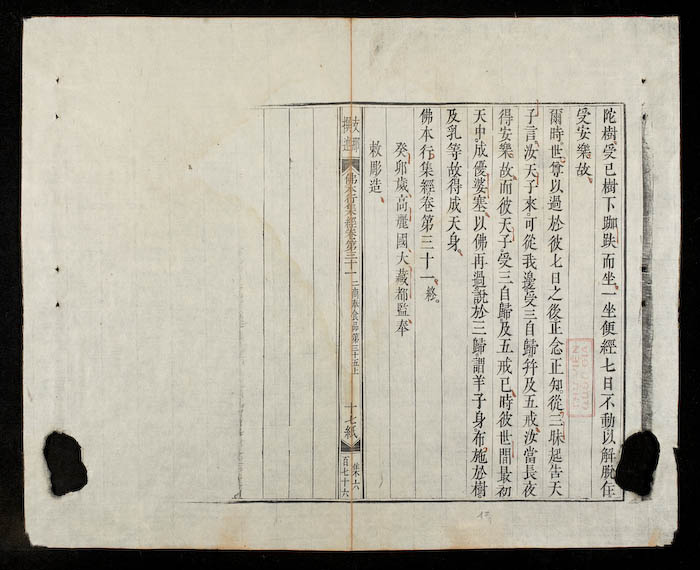 陀樹受已樹下跏趺而坐一坐便經七日不動以解脫住
受安樂故
爾時世尊以過於彼七日之後正念正知從三昧起告天
子言汝天子來可從我邊受三自歸幷及五戒汝當長夜
得安樂故而彼天子受三自歸及五戒已時彼世間最初
天中成優婆塞以佛再過說於三歸謂羊子身布施於樹
及乳等故得成天身
佛本行集經卷第三十一終
癸卯歲高麗國大藏都監奉
敕彫造
佛本行集經卷第三十一 二商奉食品第三十五上
十七紙
百七十六